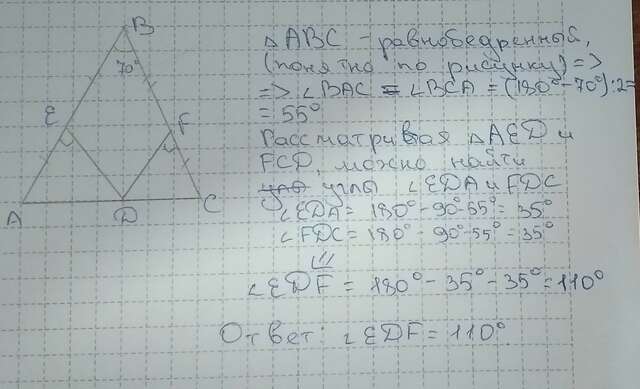 B
70°
E
F
A
D
C
△ABC - равнобедренный,
(понятно по рисунку) =>
=> ∠BAC = ∠BCA = (180°-70°):2=
= 55°
Рассматривая △AED и
FCD, можно найти
углы ∠EDA и FDC
∠EDA = 180° - 90°-55° = 35°
∠FDC = 180° - 90°-55° = 35°
∠EDF = 180° - 35° - 35° = 110°
Ответ: ∠EDF = 110°